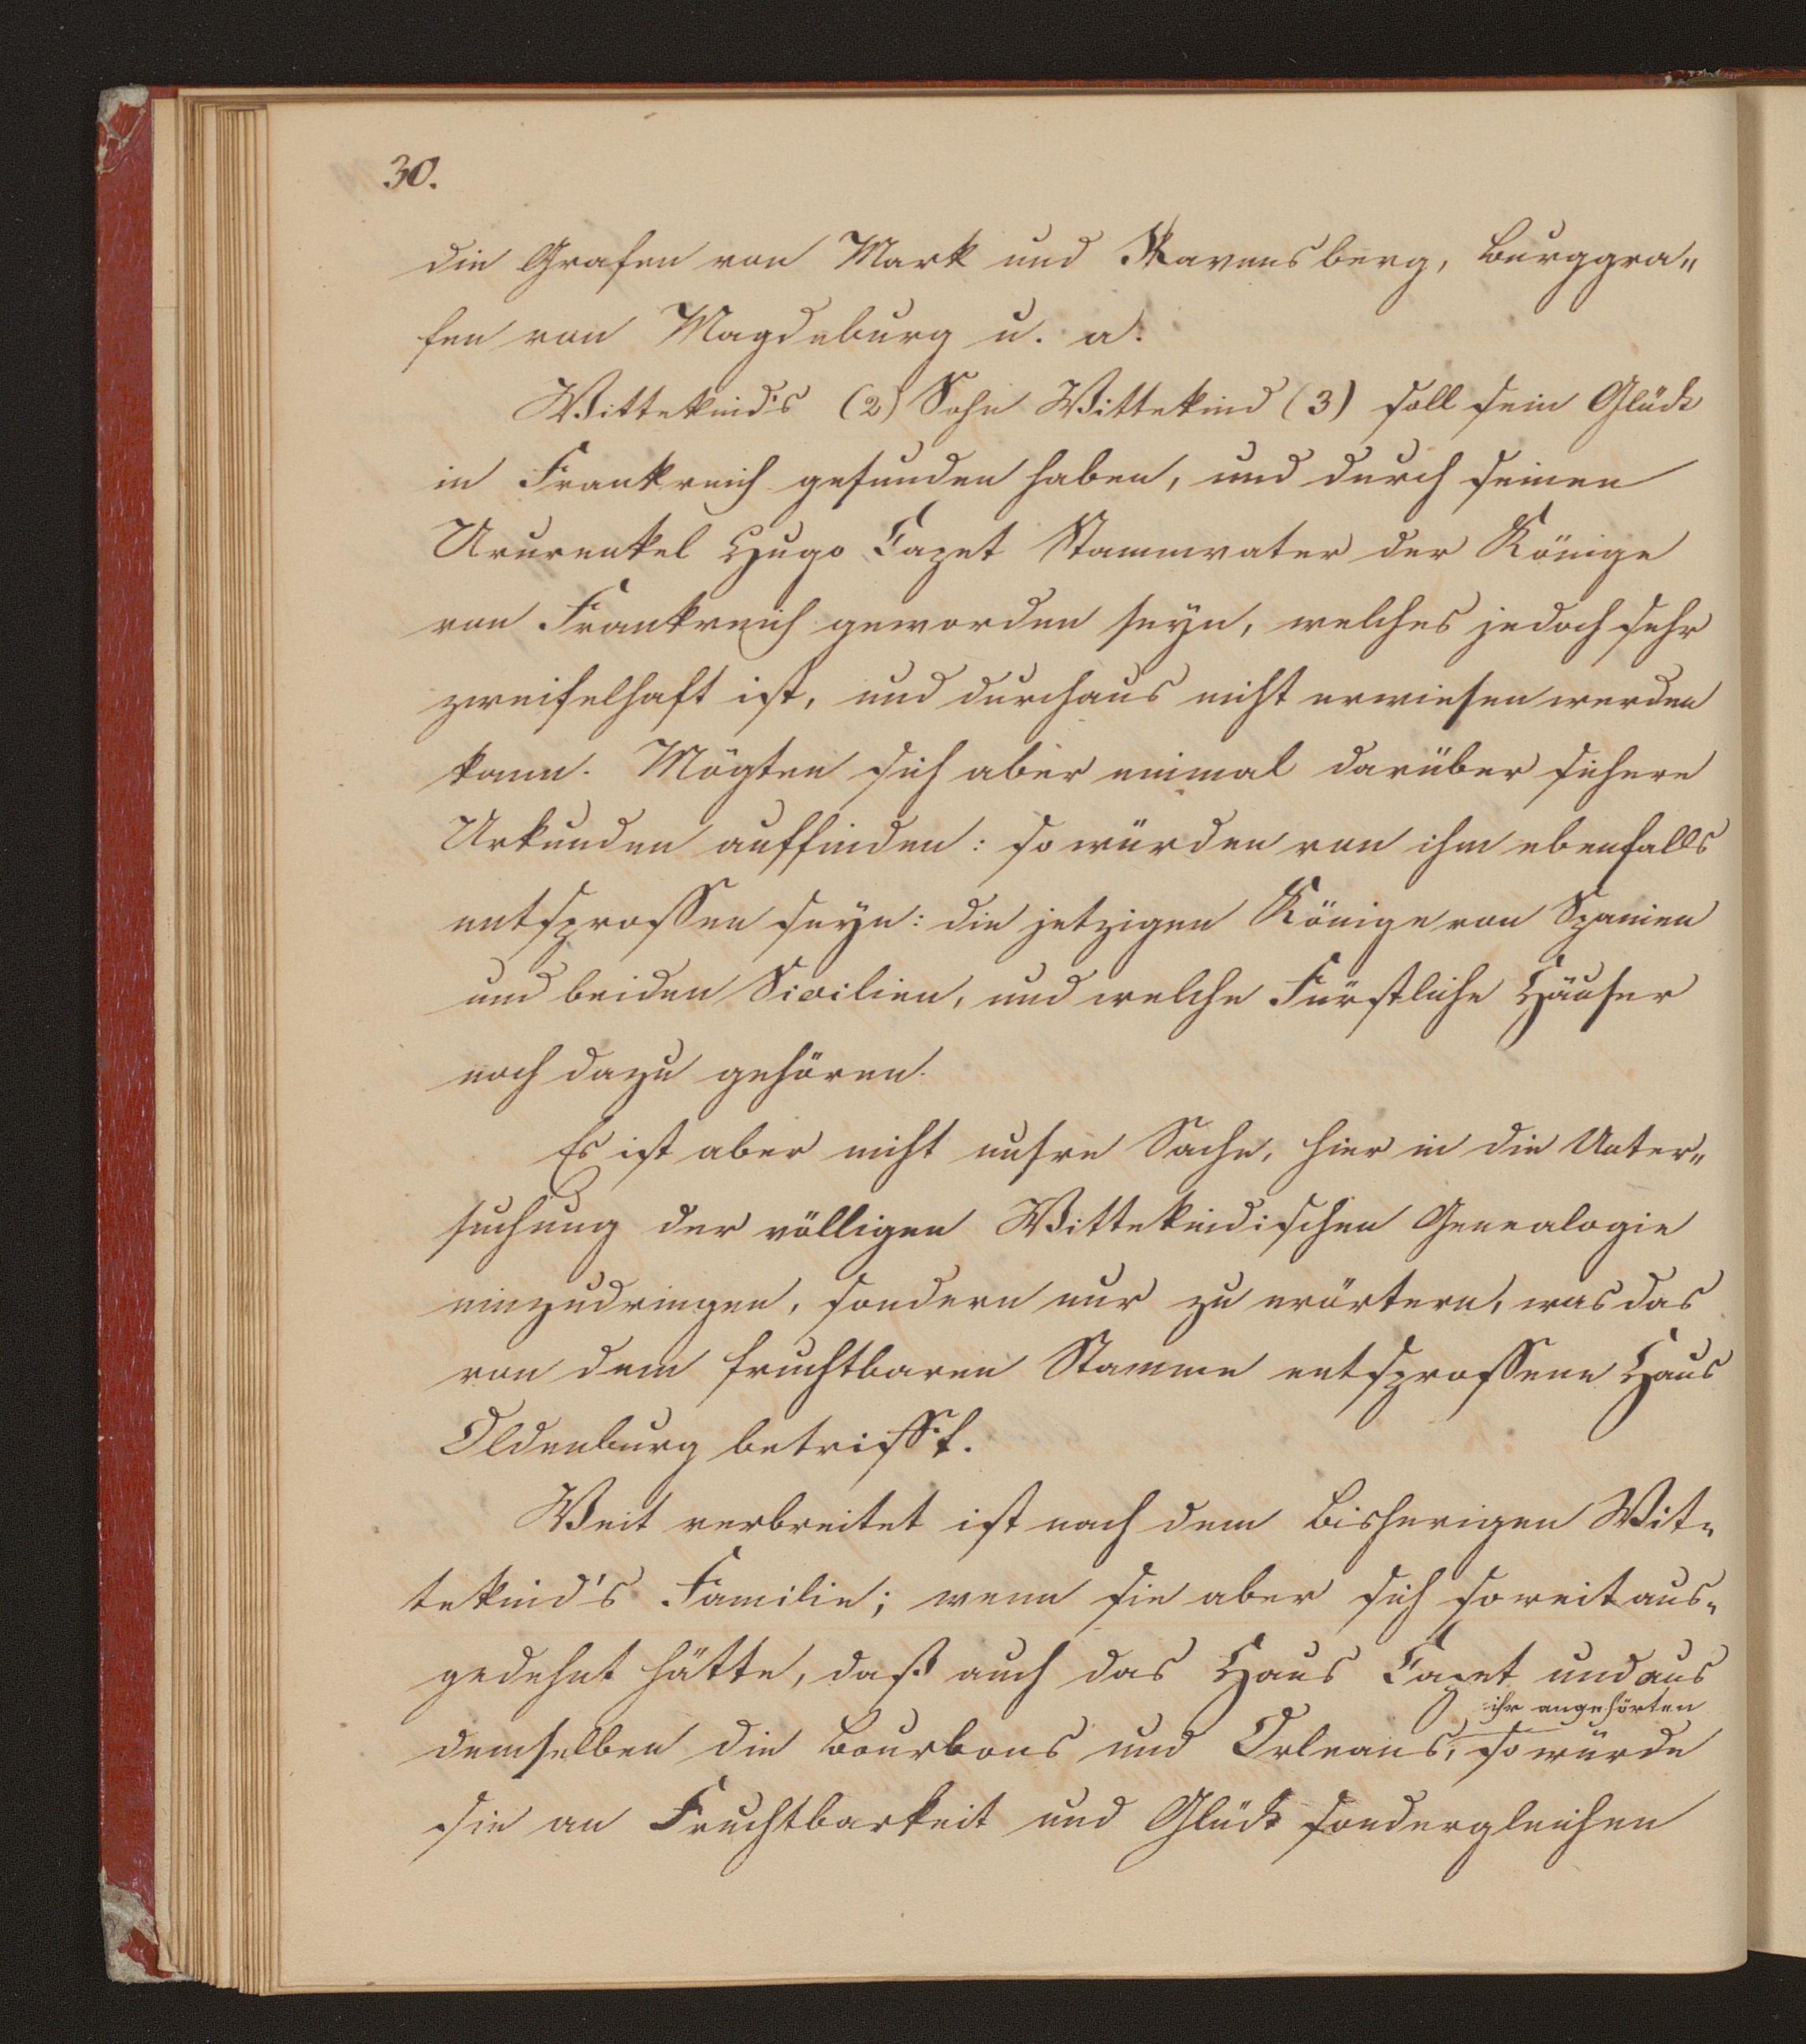 30.
die Grafen von Mark und Ravensberg, Burggra„
fen von Magdeburg u. a.
Wittekind's (2) Sohn Wittekind (3) soll sein Glück
in Frankreich gefunden haben, und durch seinen
Ururenkel Hugo Capet Stammvater der Könige
von Frankreich geworden seyn, welches jedoch sehr
zweifelhaft ist, und durchaus nicht erwiesen werden
kann. Mögten sich aber einmal darüber sichere
Urkunden auffinden: so würden von ihm ebenfalls
entsprossen seyn: die jetzigen Könige von Spanien
und beiden Sicilien, und welche Fürstliche Häuser
noch dazu gehören.
Es ist aber nicht unsre Sache, hier in die Unter„
suchung der völligen Wittekindischen Genealogie
einzudringen, sondern nur zu erörtern, was das
von dem fruchtbaren Stamme entsprossene Haus
Oldenburg betrifft.
Weit verbreitet ist nach dem Bisherigen Wit„
tekind's Familie; wenn sie aber sich soweit aus„
gedehnt hätte, daß auch das Haus Capet und aus
ihr angehörten
demselben die Bourbons und Orleans, so würde
sie an Fruchtbarkeit und Glück sondergleichen